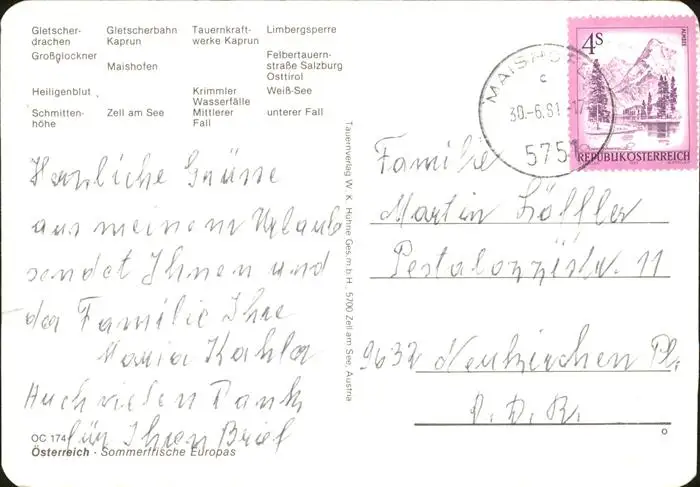 Gletscher-drachen Gletscherbahn Kaprun Tauernkraft-werke Kaprun Limbergsperre
Großglockner Maishofen Felbertauern-straße Salzburg Osttirol
Heiligenblut Krimmler Wasserfälle Weiß-See
Schmitten-höhe Zell am See Mittlerer Fall unterer Fall
Herzliche Grüsse
aus meinem Urlaub
sendet Ihnen und
der Familie Ihre
Maria Kahler
Auch vielen Dank
für Ihren Brief
OC 174
Österreich · Sommerfrische Europas
Tauernverlag W. K. Huhne Ges.m.b.H. 5700 Zell am See, Austria
4 S
ALMSEE
REPUBLIK ÖSTERREICH
MAISHOFEN
c
30.-6.81-17
5751
Familie
Martin Löffler
Pestalozzistr. 11
9632 Neukirchen Pl.
D. D. R.